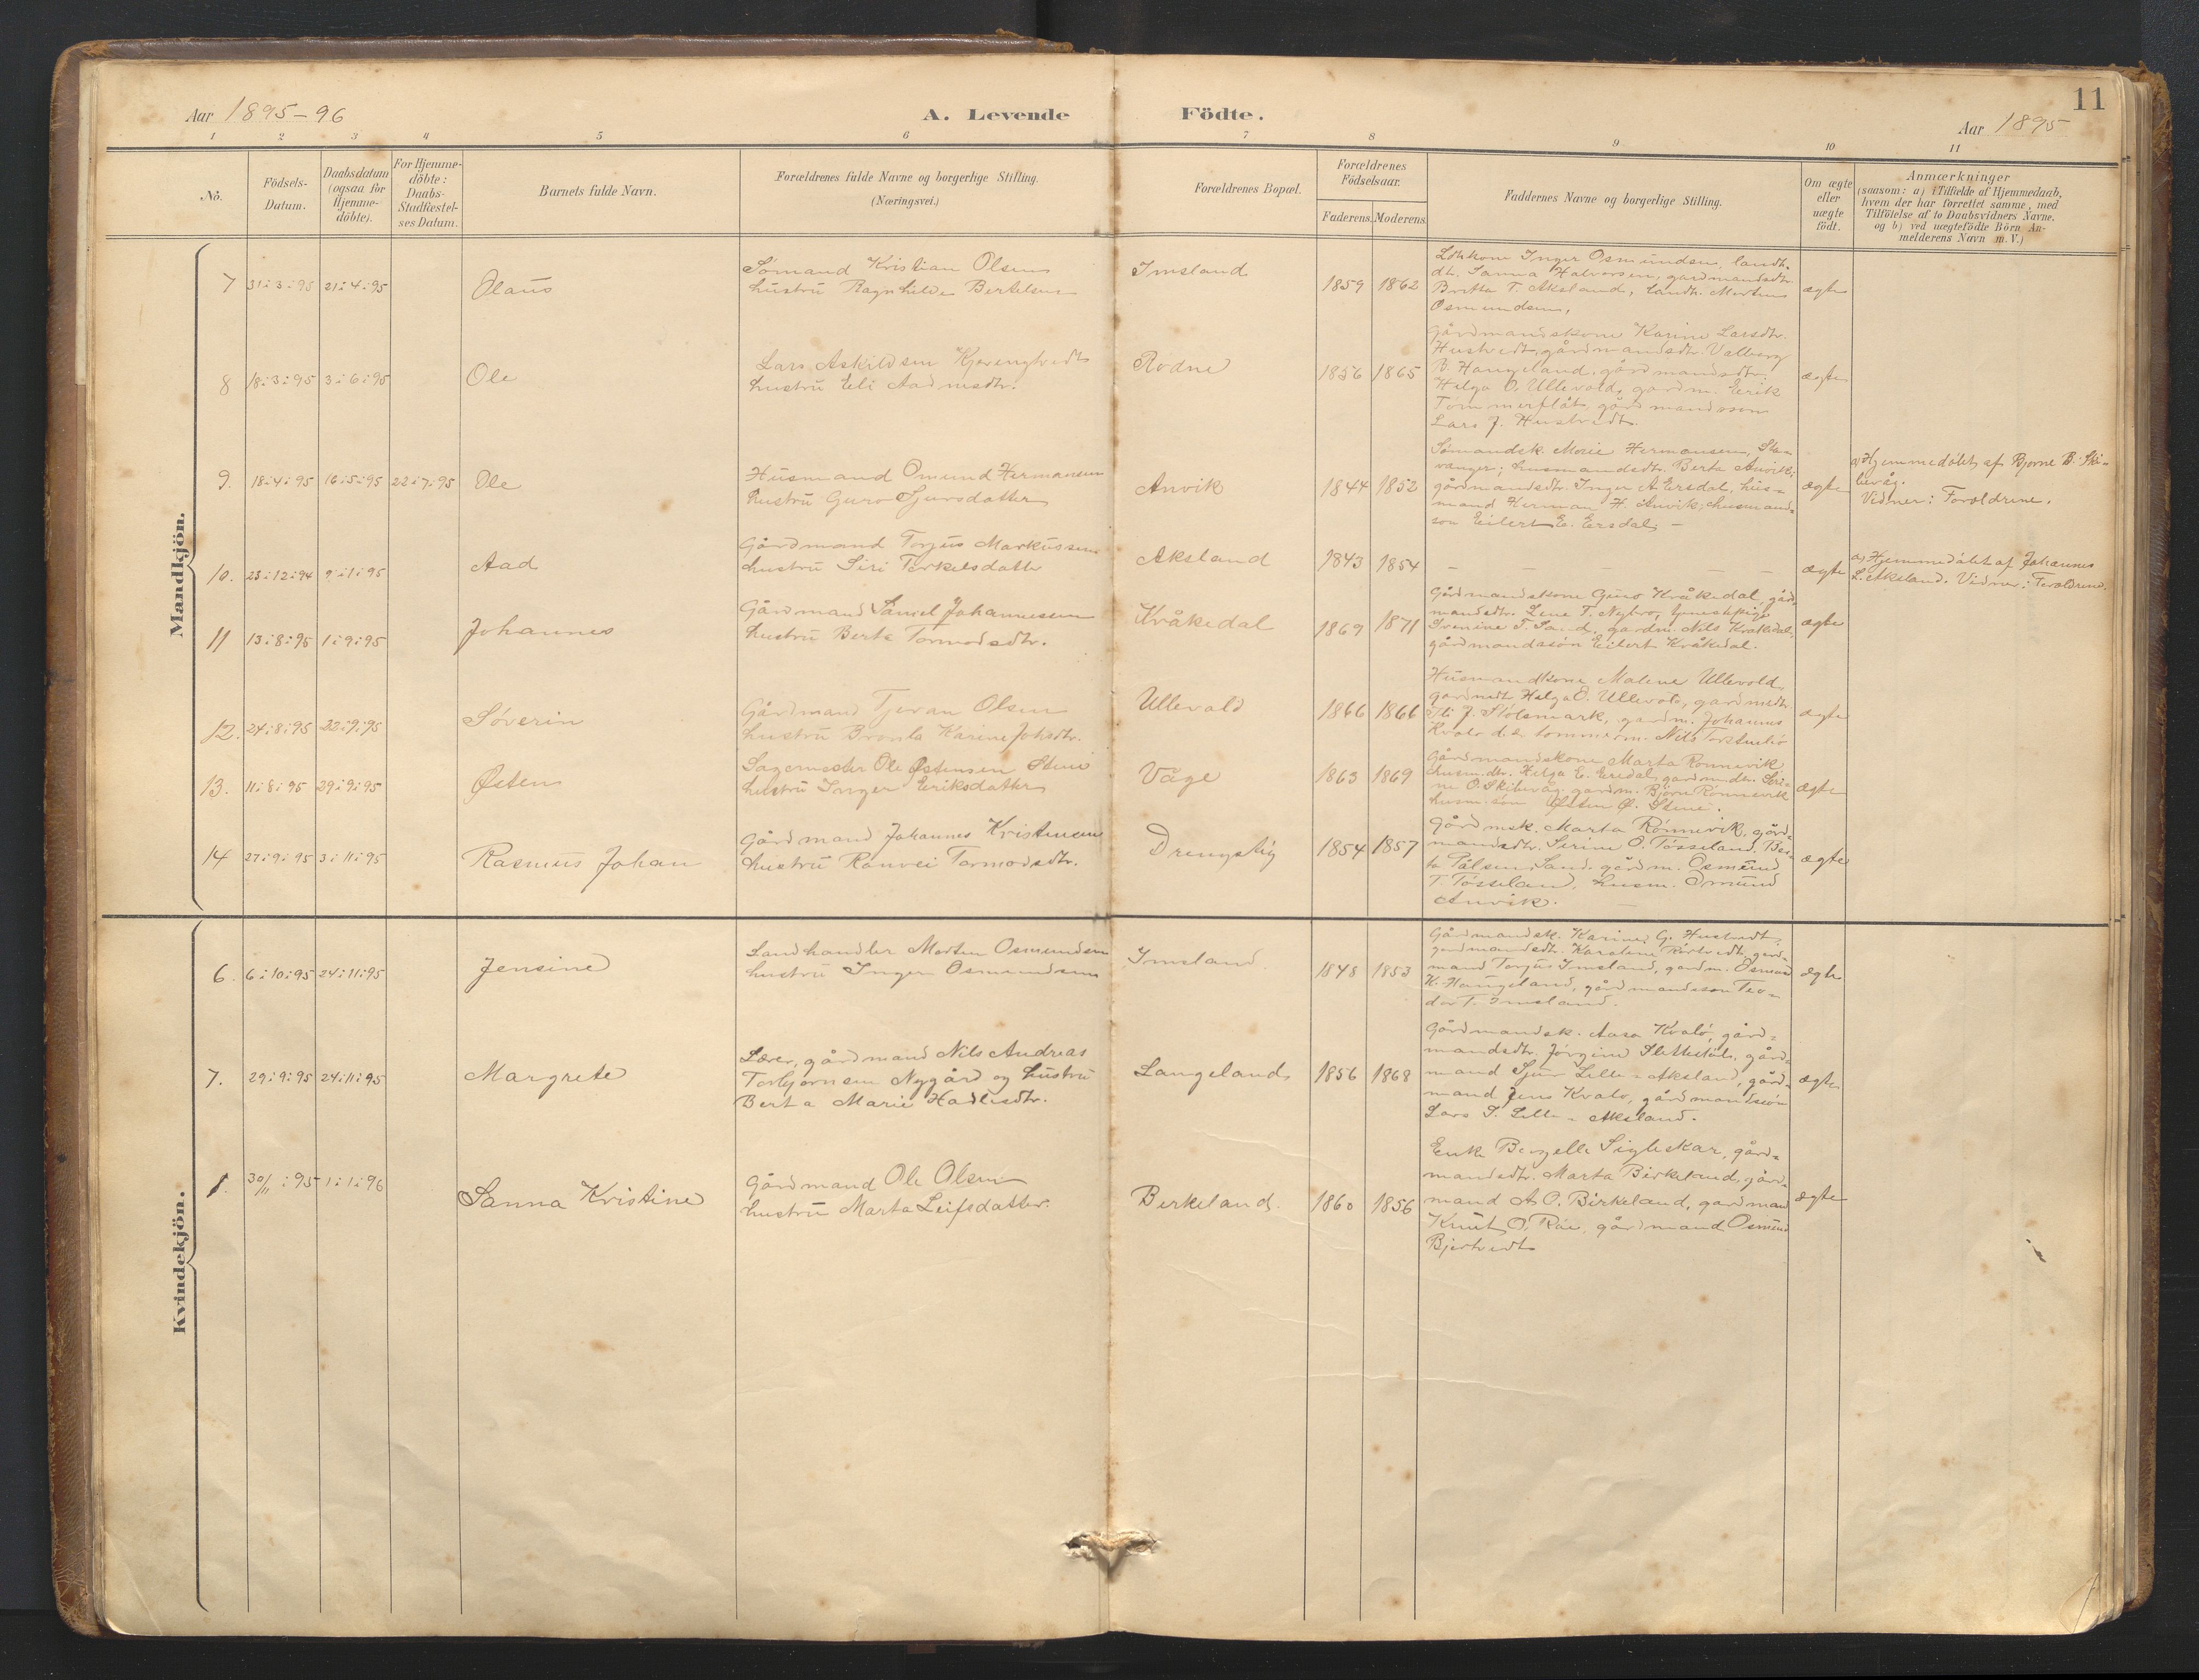 11
Aar 1895-96
A. Levende Födte.
Aar 1895
1 2 3 4 5 6 7 8 9 10 11
No.
Födsels-
Datum.
Daabsdatum
(ogsaa for
Hjemme-
döbte).
For Hjemme-
döbte:
Daabs-
Stadfæstel-
ses Datum.
Barnets fulde Navn.
Forældrenes fulde Navne og borgerlige Stilling.
(Næringsvei.)
Forældrenes Bopæl.
Forældrenes
Födselsaar.
Faderens. Moderens.
Faddernes Navne og borgerlige Stilling.
Om ægte
eller
uægte
födt.
Anmærkninger
(saasom: a) i Tilfælde af Hjemmedaab,
hvem der har forrettet samme, med
Tilföielse af to Daabsvidners Navne.
og b) ved uægtefödte Börn An-
melderens Navn m. V.)
Mandkjön.
7 31:3:95 21:4:95 Olaus
Sømand Kristian Olsen
hustru Ragnhilde Bertelsen
Imsland 1859 1862
Inger Osmundsen, landh.
dtr. Sanna Halvorsen, gardmandsdtr.
Britha T. Aksland, landh. Morten
Osmundsen.
ægte
8 18:3:95 3:6:95 Ole
Lars Askildsen Kjerringtvedt
hustru Eli Aadnesdtr.
Rodne 1856 1865
Gårdmandskone Karine Larsdtr.
Hustvedt, gårdmandsdtr. Valborg
Haugeland, gårdmandsdtr.
Helga O. Ullevold, gardm. Eerik
Tømmerflåt, gårdmandssøn
Lars J. Hustvedt.
ægte
9. 18:4:95 16:5:95 22:7:95 Ole
Husmand Omund Hermansen
hustru Guro Sjursdatter
Anvik 1844 1852
Sømandsk. Marie Hermansen, Sta-
vanger; husmandsdtr. Berta Anvik;
gårdmandsdtr. Inger A. Ersdal, hus-
mand Herman H. Anvik, husmand-
søn Eilert E. Ersdal. –
ægte
a) Hjemmedøbt af Bjorne B. Ski-
bevåg.
Vidner: Foroldrene.
10. 23:12:94 9:1:95 Aad
Gårdmand Torjus Markussen
hustru Siri Torkelsdatter
Aksland 1843 1854
– – – – –
ægte
a) Hjemmedøbt af Johannes
L. Aksland. Vidner: Foroldrene.
11 13:8:95 1:9:95 Johannes
Gårdmand Samuel Johannessen
hustru Berta Tormodsdtr.
Kråkedal 1869 1871
Gårdmandskone Guro Kråkedal, gård-
mandsdtr. Lene T. Nybro, tjenestepige
Svenine T. Sand, gardm. Nils Kråkedal,
gårdmandssøn Eilert Kråkedal.
ægte
12. 24:8:95 22:9:95 Søverin
Gårdmand Tjeran Olsen
hustru Karine Johsdtr.
Ullevold 1866 1866
Husmandkone Malene Ullevold,
gardmdt. Helga O. Ullevold, gardmdt.
J. Stolsmark, gardm. Johannes
Nils
ægte
13. 11:8:95 29:9:95 Østen
Sagermester Ole Østensen Stene
hustru Inger Eriksdatter
Våge 1863 1869
Gårdmandskone Marta Rønnevik
husm.dtr. Helga E. Ersdal, gardm.dtr. Seri-
ne O. Skibevåg, gardm. Bjørn Rønnevik
husm. søn Østen Ø. Stene.
ægte
14 27:9:95 3:11:95 Rasmus Johan
Gårdmand Johannes Kristensen
hustru Ranvei Tormodsdtr.
Drengstig 1854 1857
Gårdmsk. Marta Rønnevik, gård-
mandsdtr. Serine O. Tøsseland, Ber-
ta Pålsen, Sand, gårdm. Osmund
T. Tøsseland, husm. Omund
Anvik.
ægte
Kvindekjön.
6. 6:10:95 24:11:95 Jensine
Landhandler Morten Osmundsen
hustru Inger Osmundsen
Imsland 1848 1853
Gårdmandsk. Karine G. Hustvedt,
gardmandsdt. Karoline gård-
mand Torjus Imsland, gardm. Osmon
K. Haugeland, gårdmandssøn Teo-
dor T. Imsland.
ægte
7. 29:9:95 24:11:95 Margrete
Lærer, gårdmand Nils Andreas
Torbjørnsen Nygård og hustru
Berta Marie Hadlesdtr.
Langeland 1856 1868
Gårdmandsk. Aasa Kvalø, gård-
mandsdtr. Jørgine gård-
mand Sjur Lille-Aksland, gård-
mand Jens Kvalø, gårdmandssøn
Lars S. Lille-Aksland.
ægte
1. 30/11:95 1:1:96 Sanna Kristine
Gårdmand Ole Olsen
hustru Marta Leifsdatter.
Birkeland. 1860 1856
Enke Sigleskar, gård-
mandsdtr. Marta Birkeland, gård-
mand A. O. Birkeland, gardmand
Knut O. Råe, gårdmand Osmund
Bjertvedt
ægte